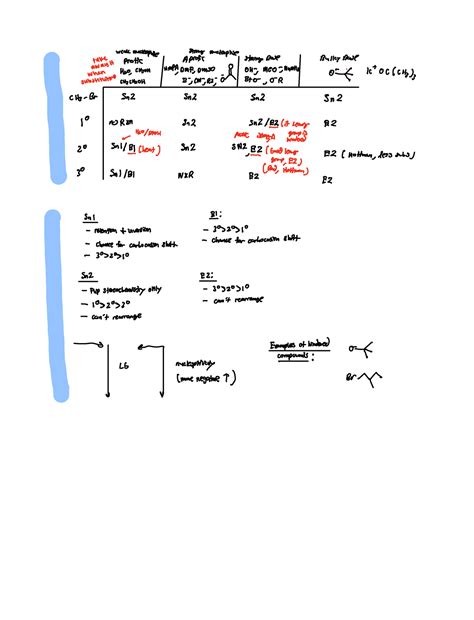 take away H when substitution
weak nucleophile
Protic
H₂O, CH₃OH
CH₃CH₂OH
strong nucleophile
Aprotic
DMF, DMSO
strong base
Bulky base
K⁺ OC(CH₃)₃
CH₃-Br Sn2 Sn2 Sn2 Sn2
1° no Rxn Sn2 Sn2/E2 (if E2
2° Sn1/E1 (heat) Sn2 SN2, E2 E2 (Hoffman, less subs)
3° Sn1/E1 NxR E2 E2
Sn1
- retention + inversion
- chance for carbocation shift
- 3°>2°>1°
E1:
- 3°>2°>1°
- chance for carbocation shift
Sn2
- Flip stereochemistry only
- 1°>2°>3°
- can't rearrange
E2:
- 3°>2°>1°
- can't rearrange
LG
nucleophilicity
(more negative ↑)
Examples of hindered
compounds:
O⁻
Br